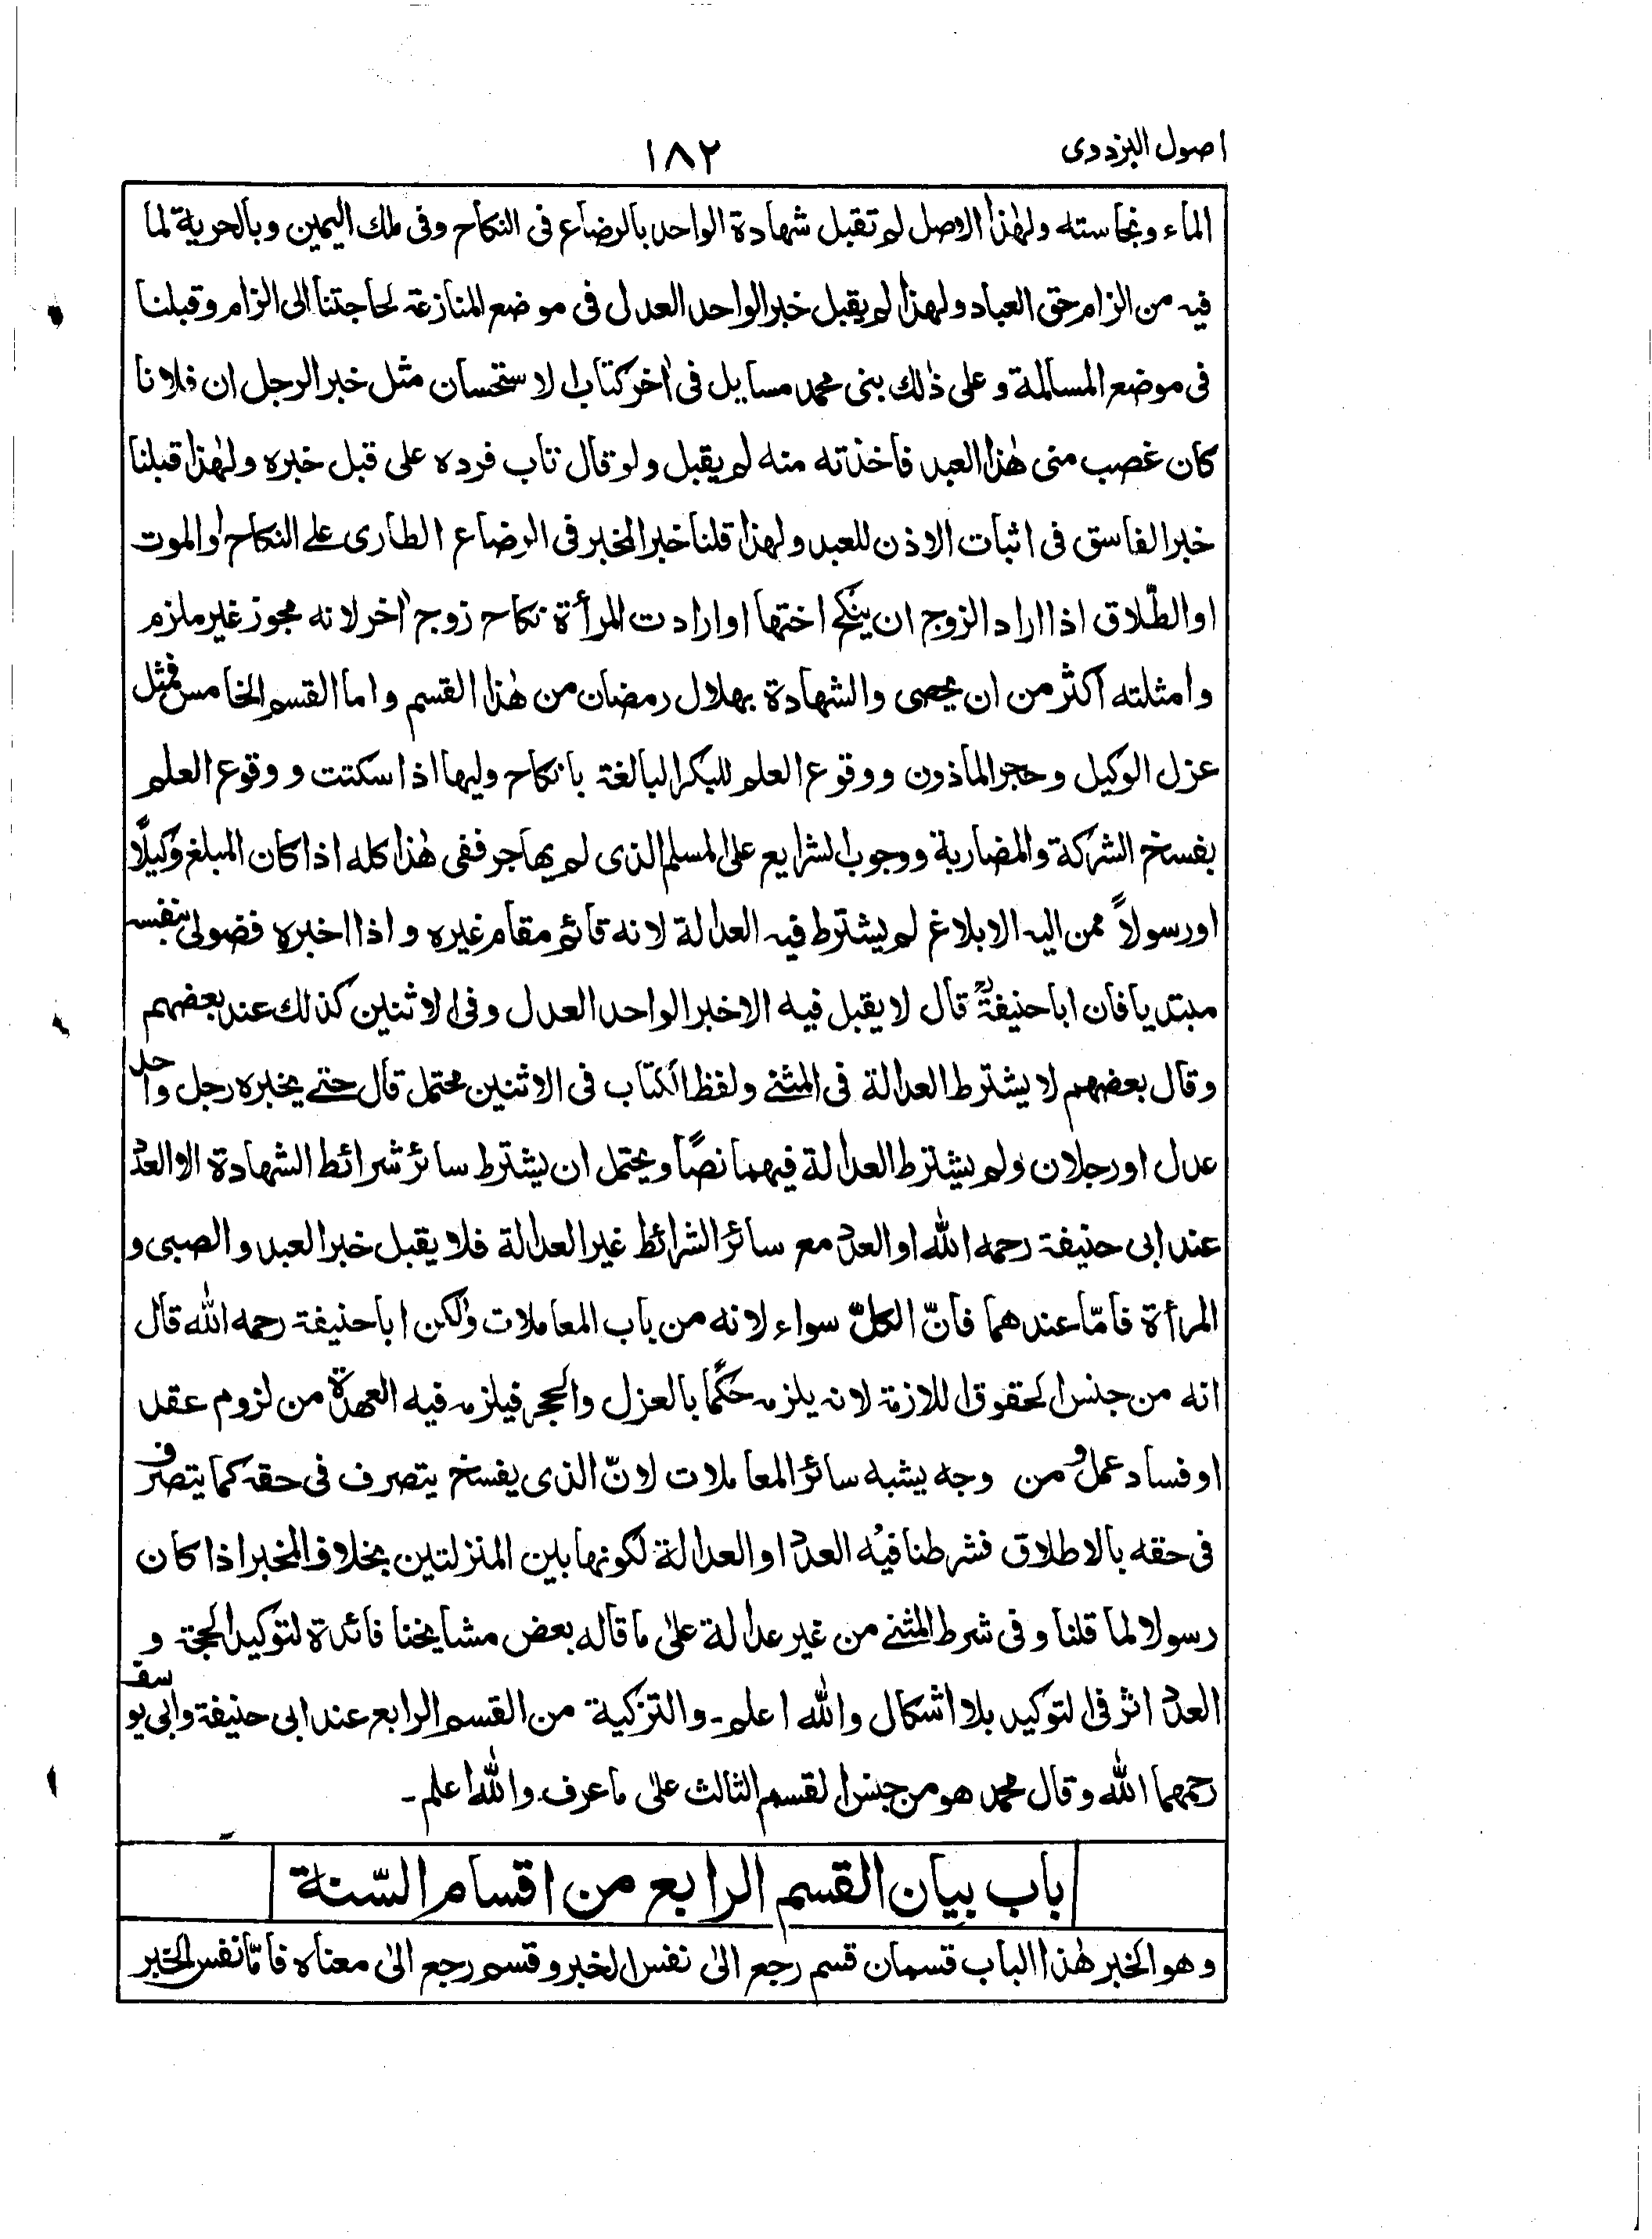 اصول البزدوى
١٨٢
الماء ونجاسته ولهٰذا الاصل لم تقبل شهادة الواحد بالرضاع فى النكاح وفى ملك اليمين وبالحرية لما
فيه من الزام حق العباد ولهذا لم يقبل خبر الواحد العدل فى موضع المنازعة لحاجتنا الى الزام وقبلنا
فى موضع المسالمة وعلى ذٰلك بنى محمد مسايل فى اٰخر كتاب الاستحسان مثل خبر الرجل ان فلانا
كان غصب منى هٰذا العبد فاخذته منه لم يقبل ولو قال تاب فرده على قبل خبره ولهٰذا قبلنا
خبر الفاسق فى اثبات الاذن للعبد ولهذا قلنا خبر المخبر فى الرضاع الطارى على النكاح او الموت
او الطّلاق اذا اراد الزوج ان ينكح اختها او ارادت المرأة نكاح زوج اٰخر لانه مجوز غير ملزم
وامثلته اكثر من ان يحصى والشهادة بهلال رمضان من هٰذا القسم واما القسم الخامس فمثل
عزل الوكيل وحجر الماذون ووقوع العلم للبكر البالغة بانكاح وليها اذا سكتت ووقوع العلم
بفسخ الشركة والمضاربة ووجوب الشرايع على المسلم الذى لم يهاجر ففى هٰذا كله اذا كان المبلغ وكيلًا
او رسولاً ممن اليه الابلاغ لم يشترط فيه العدالة لانه قائم مقام غيره واذا اخبره فضولى بنفسه
مبتديا فان ابا حنيفةؒ قال لا يقبل فيه الا خبر الواحد العدل وفى الاثنين كذلك عند بعضهم
وقال بعضهم لا يشترط العدالة فى المثنے ولفظ الكتاب فى الاثنين محتمل قال حتے يخبره رجل واحد
عدل او رجلان ولم يشترط العدالة فيهما نصًا ويحتمل ان يشترط سائر شرائط الشهادة الا العدٗ
عند ابى حنيفة رحمه الله او العدٗ مع سائر الشرائط غير العدالة فلا يقبل خبر العبد والصبى و
المرأة فامّا عندهما فانّ الكلّ سواء لانه من باب المعاملات ولٰكن ابا حنيفة رحمه الله قال
انه من جنس الحقوق اللازمة لانه يلزمه حكمًا بالعزل والحجر فيلزمه فيه العهدة من لزوم عقد
او فساد عمل ومن وجه يشبه سائر المعاملات لانّ الذى يفسخ يتصرف فى حقه كما يتصرف
فى حقه بالاطلاق فشرطنا فيه العدٗ او العدالة لكونها بين المنزلتين بخلاف المخبر اذا كان
رسولا لما قلنا وفى شرط المثنے من غير عدالة علىٰ ما قاله بعض مشايخنا فائدة لتوكيد الحجة و
العدٗ اثر فى التوكيد بلا اشكال والله اعلم۔ والتزكية من القسم الرابع عند ابى حنيفة وابى يوسف
رحمهما الله وقال محمد هو من جنس القسم الثالث علىٰ ما عرف والله اعلم۔
باب بيان القسم الرابع من اقسام السّنة
وهو الخبر هٰذا الباب قسمان قسم رجع الىٰ نفس الخبر وقسم رجع الىٰ معناه فامّا نفس الخبر